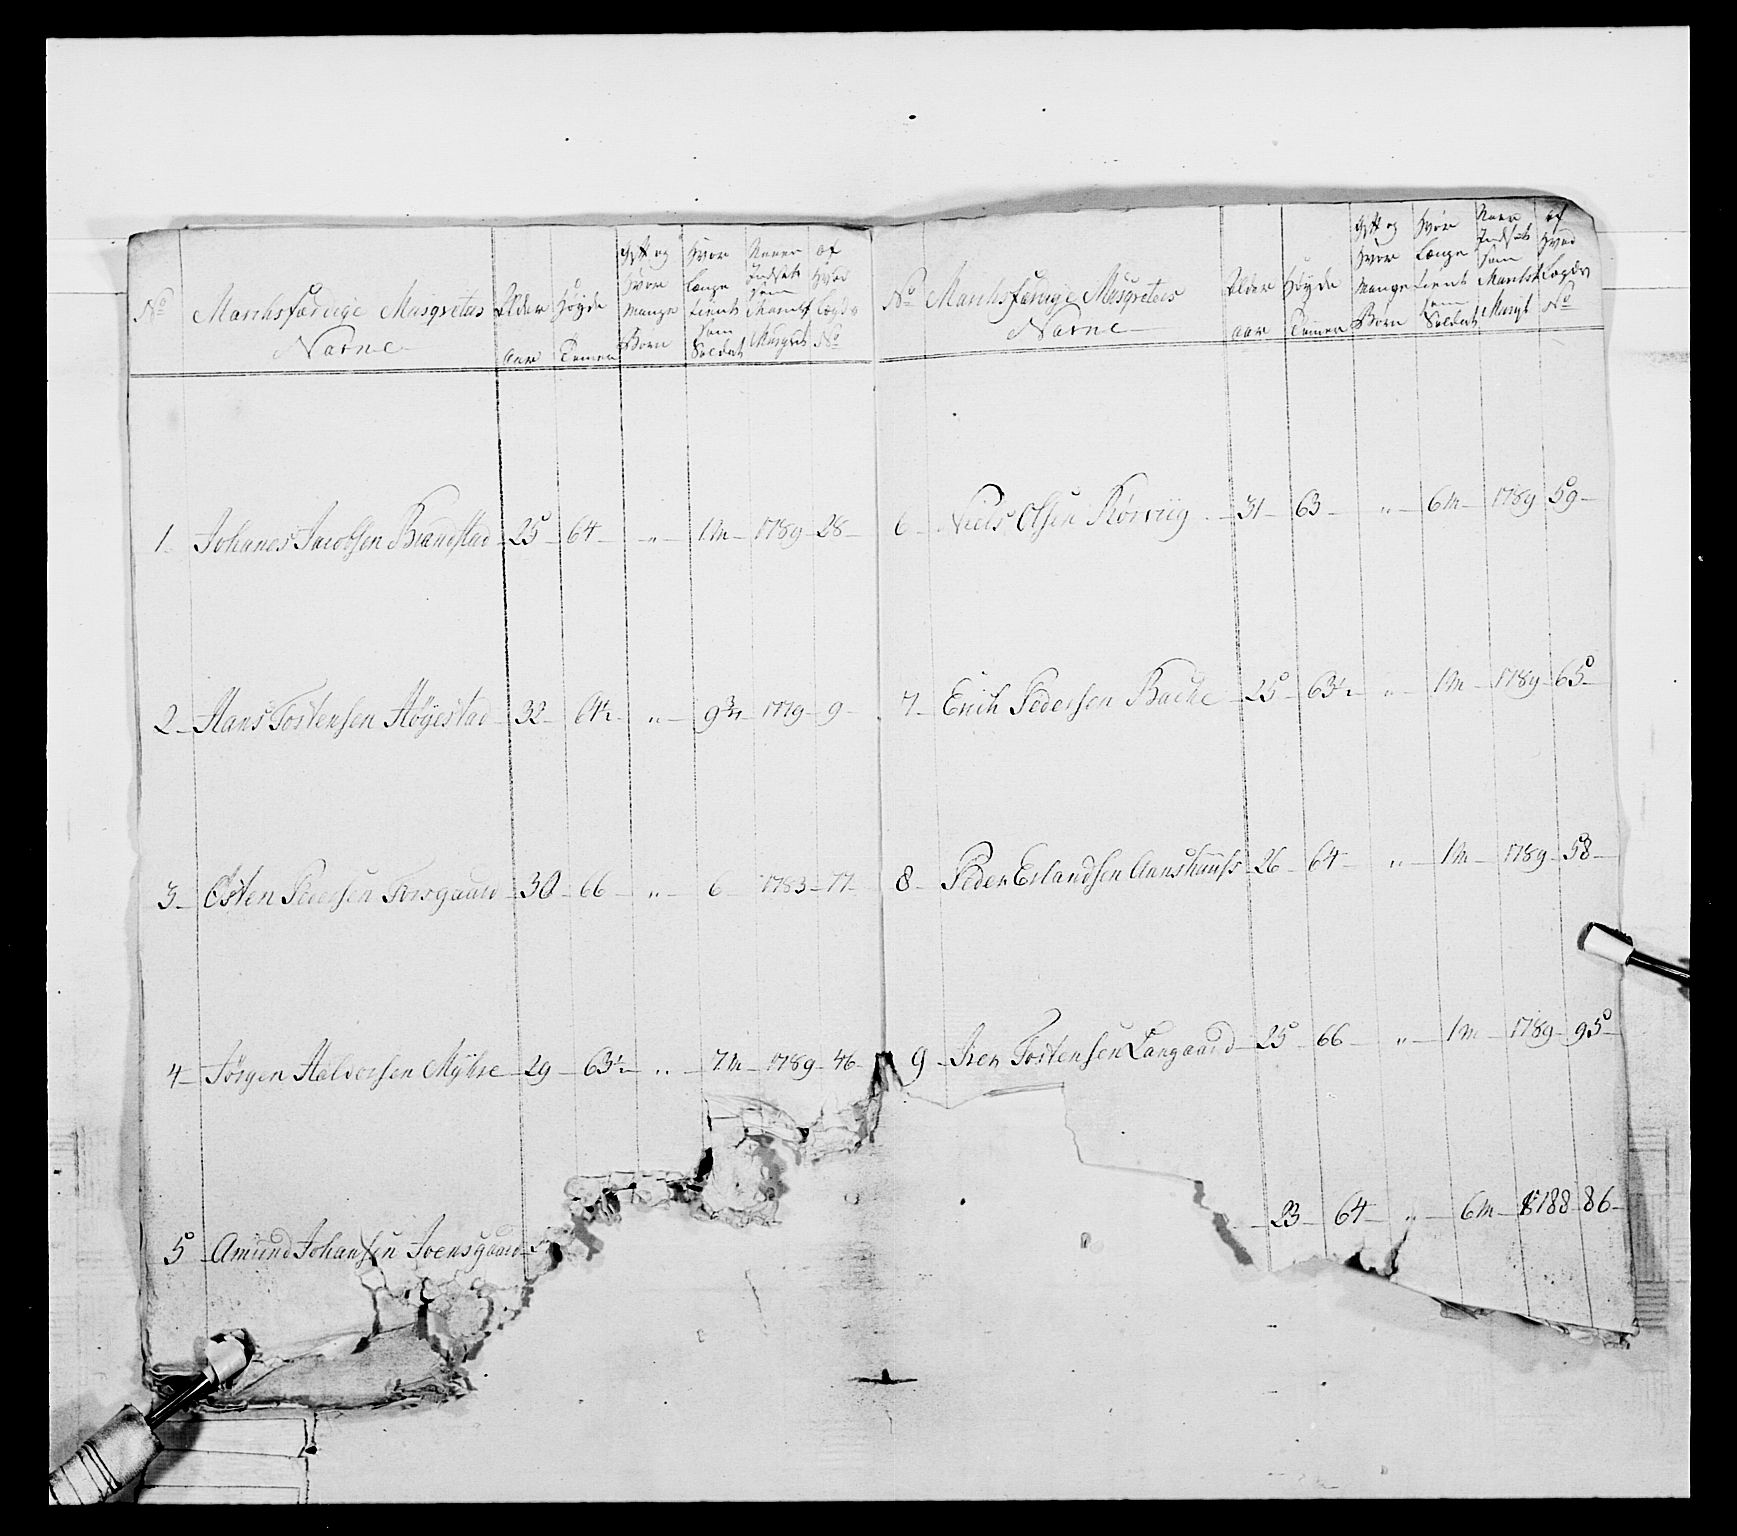 No
Marchsfærdige Musqveteers
Navne
Alder
Aar
Høyde
Tomer
Gift og
Hvor
Mange
Børn
Hvor
Længe
tient
som
Soldat
Naar
Indsat
som
Marchf
Musqvt
af
Hvad
Lægds
No
1 Johanes Jacobsen Brandstad 25 64 " 1 M 1789 28
2 Hans Tostensen Høgestad 32 64½ " 9¾ 1779 9
3 Østen Pedersen Torsgaard 30 66 " 6 1783 77
4 Jørgen Haldorsen Myhre 29 63½ " 7 M 1789 46
5 Amund Johansen Joensgaard
No
Marchsfærdige Musqveteers
Navne
Alder
Aar
Høyde
Tomer
Gift og
Hvor
Mange
Børn
Hvor
Længe
tient
som
Soldat
Naar
Indsat
som
Marchf
Musqt
af
Hvad
Lægds
No
6 Niels Olsen Rørviig 31 63 " 6 M 1789 59
7 Erich Pedersen Bache 25 63½ " 1 M 1789 65
8 Peder Erlandsen 26 64 " 1 M 1789 58
9 Iver Tostensen Langaard 25 66 " 1 M 1789 95
23 64 " 6 M 1788 86